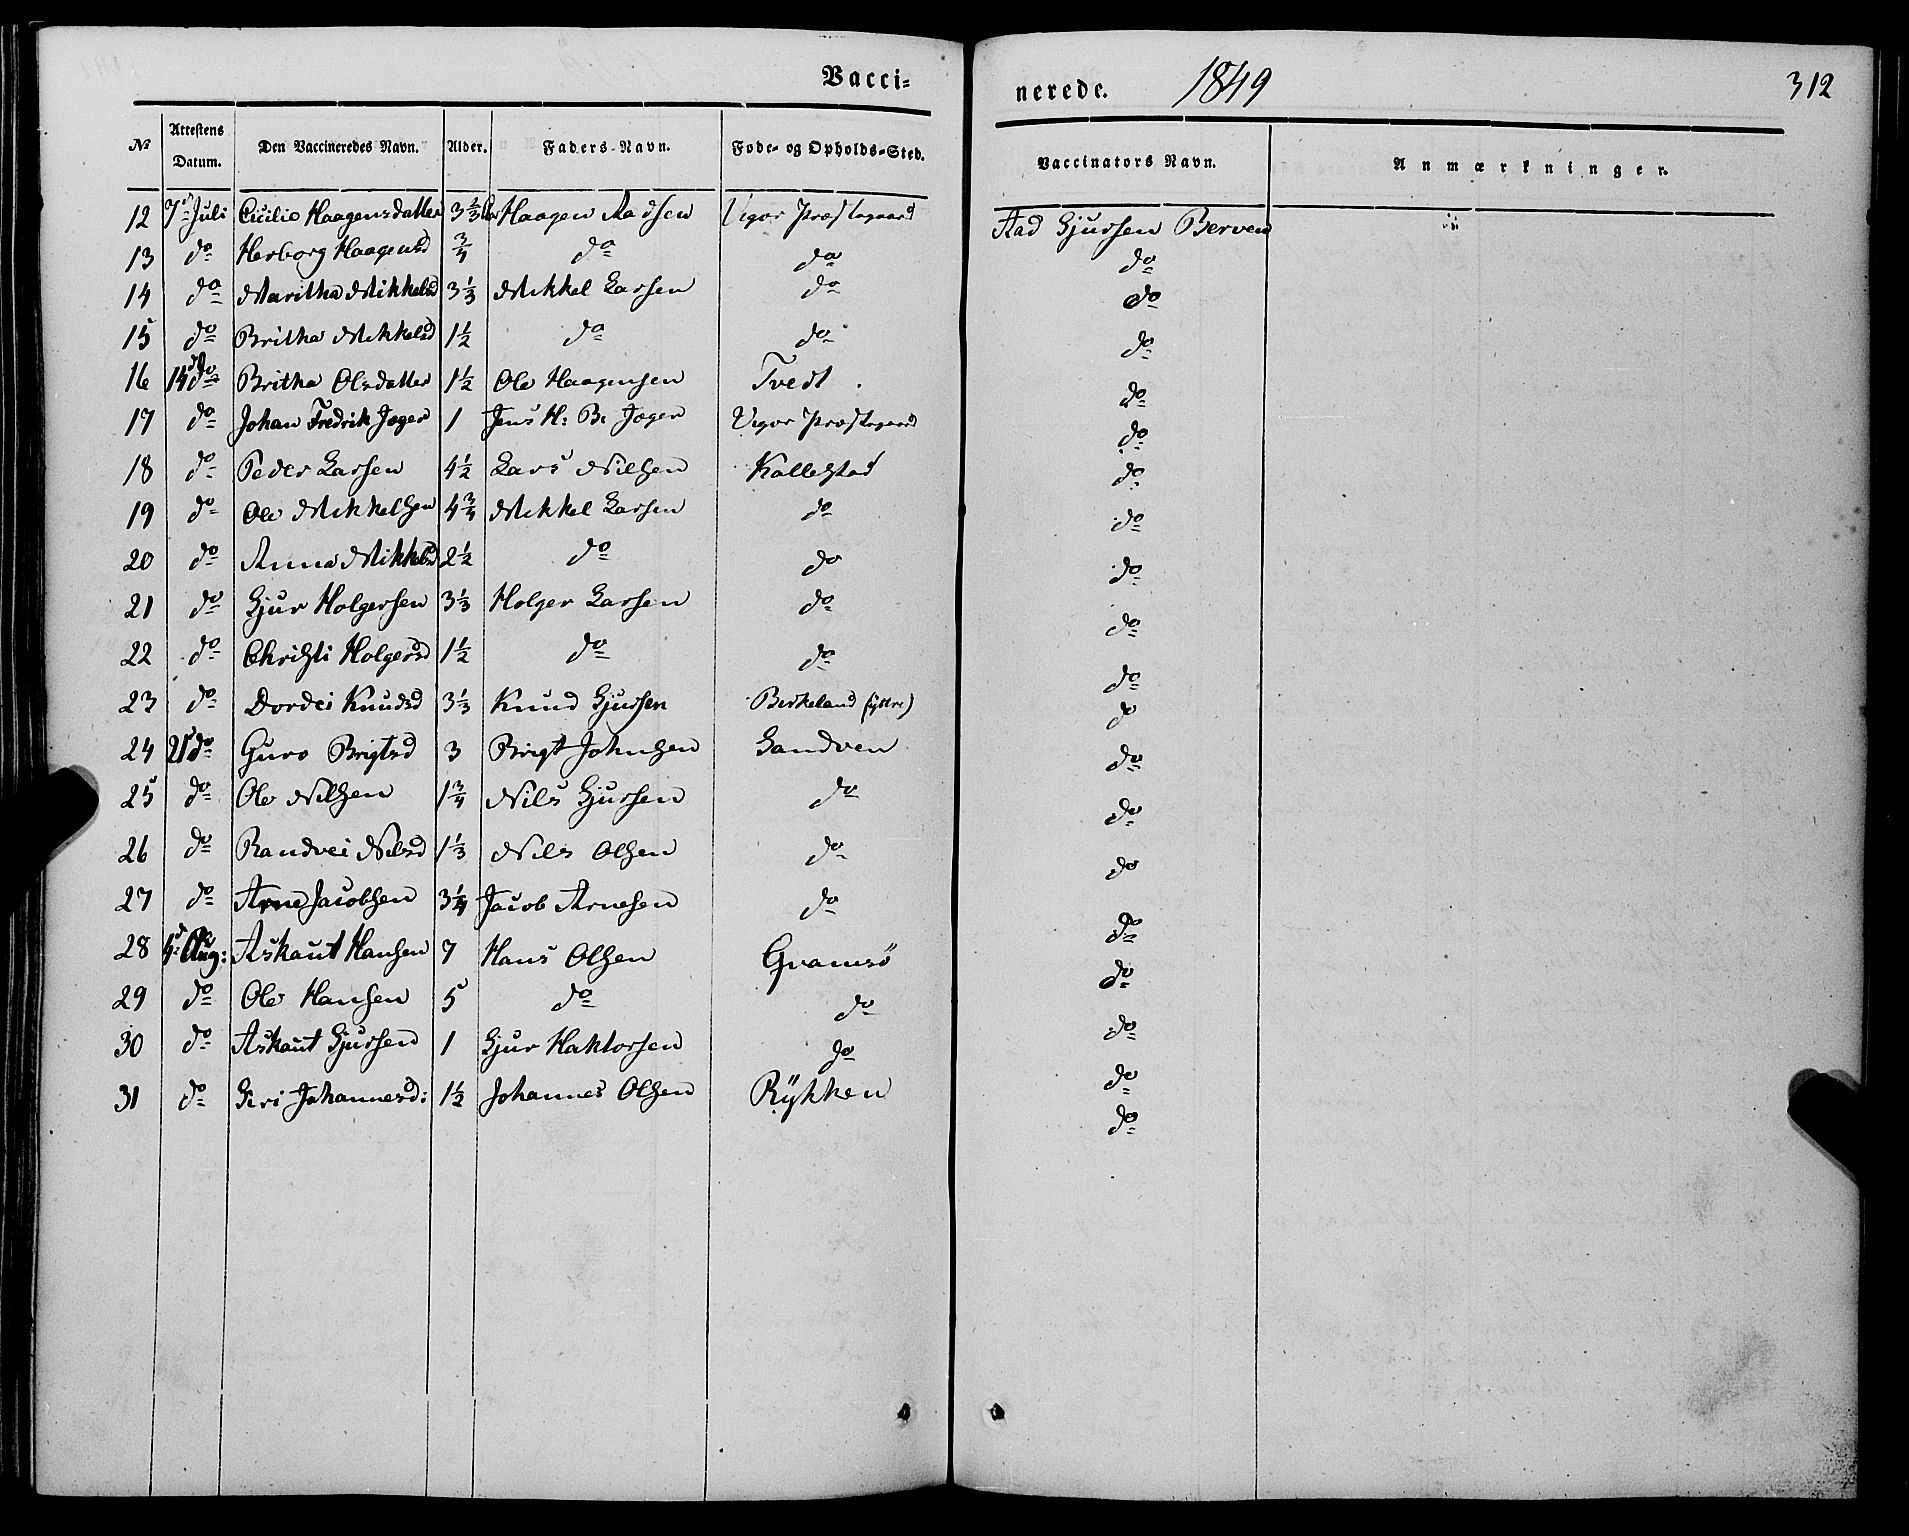 Vacci=
nerede. 1849 312
No Attestens Datum. Den Vaccineredes Navn. Alder. Faders-Navn. Føde- og Opholds-Sted. Vaccinators Navn. Anmærkninger.
12 7d Juli Cicilie Haagensdatter 3 1/3 Haagen Aadsen Vigør Præstegaard Aad Gjursen Berven
13 do Herborg Haagensd 3/4 do do do
14 do Maritha Mikkelsd 3 1/3 Mikkel Larsen do do
15 do Britha Mikkelsd 1 1/2 do do do
16 14d do Britha Olsdatter 1 1/2 Ole Haagensen Tvedt do
17 do Johan Fredrik Jæger 1 Jens H: B: Jæger Vigør Præstegaard do
18 do Peder Larsen 4 1/2 Lars Nilsen Kallestad do
19 do Ole Mikkelsen 4 3/4 Mikkel Larsen do do
20 do Anna Mikkelsd 2 1/2 do do do
21 do Gjur Holgersen 3 1/3 Holger Larsen do do
22 do Christi Holgersd 1 1/2 do do do
23 do Dordei Knudsd 3 1/3 Knud Gjursen Birkeland (yttre) do
24 21 do Guro Brigtsd 3 Brigt Johnsen Sandven do
25 do Ole Nilsen 1 3/4 Nils Gjursen do do
26 do Randvei Nilsd 1 1/3 Nils Olsen do do
27 do Arne Jacobsen 3 1/4 Jacob Arnesen do do
28 4d Aug: Askaut Hansen 7 Hans Olsen Gramsø do
29 do Ole Hansen 5 do do do
30 do Askaut Gjursen 1 Gjur Haktorsen do do
31 do Siri Johannesd: 1 1/2 Johannes Olsen Rykken do